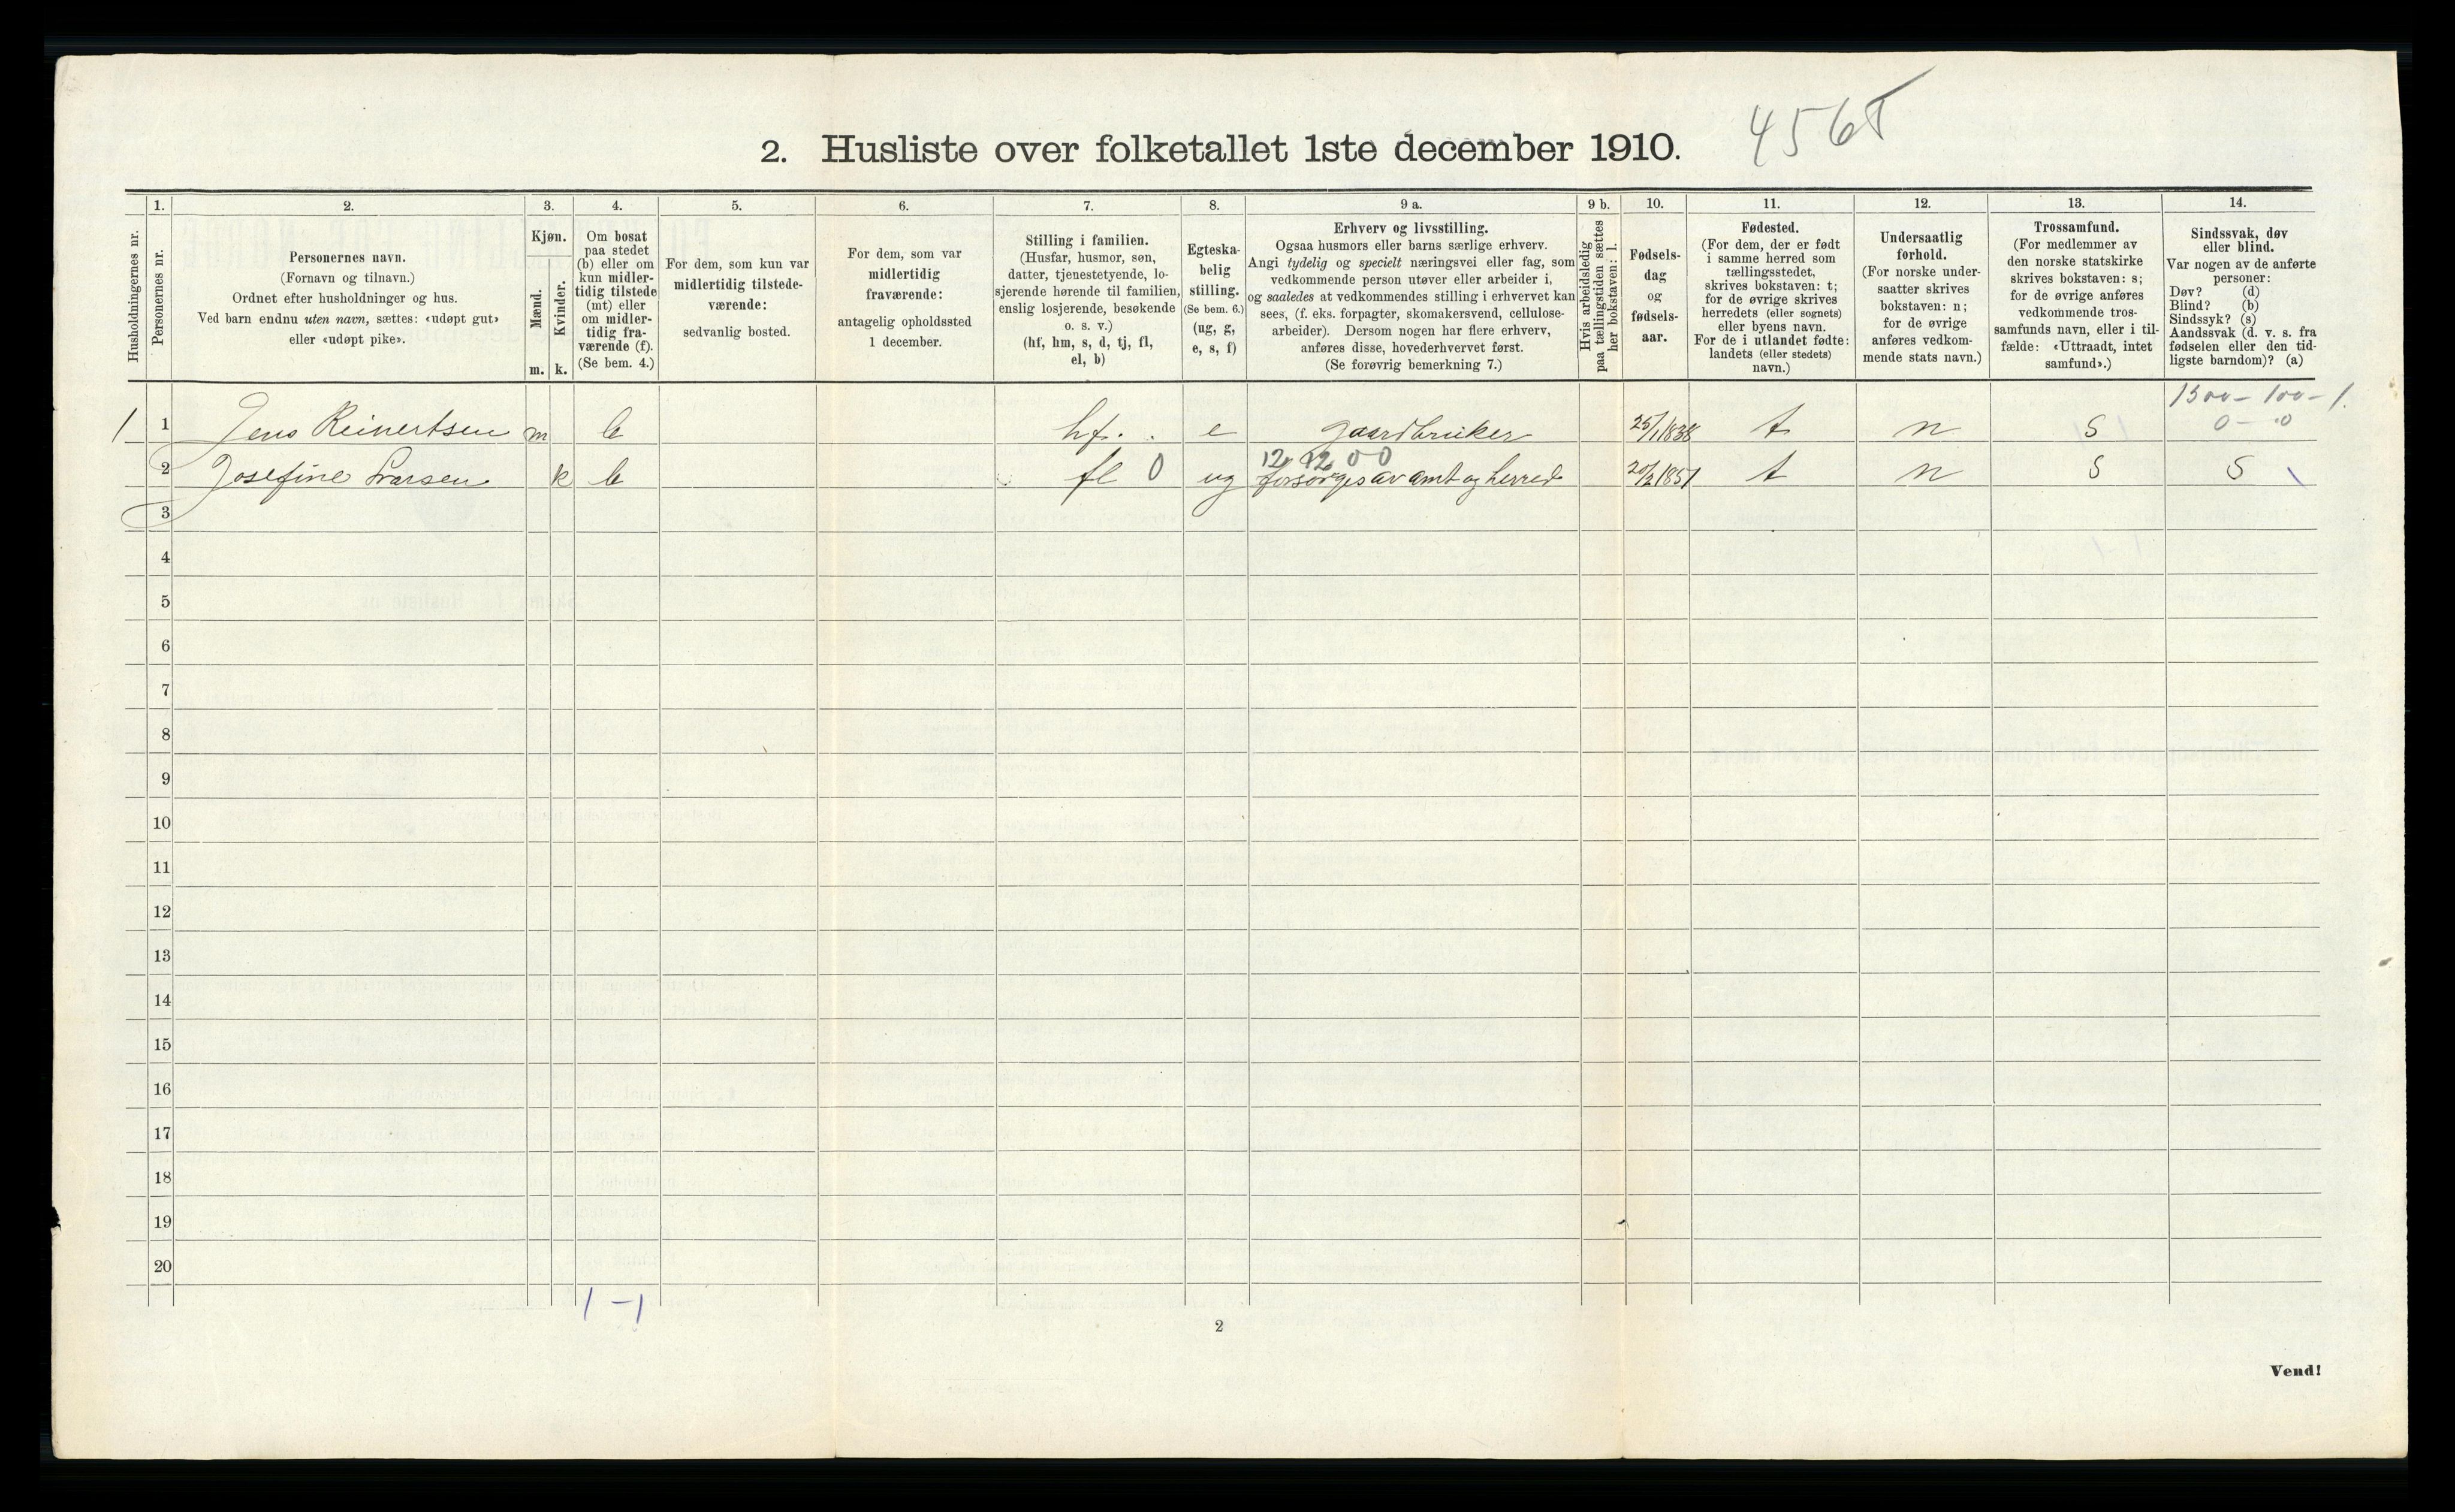 4565
2. Husliste over folketallet 1ste december 1910.
Husholdningernes nr.
1.
Personernes nr.
2.
Personernes navn.
(Fornavn og tilnavn.)
Ordnet efter husholdninger og hus.
Ved barn endnu uten navn, sættes: «udøpt gut»
eller «udøpt pike».
3.
Kjøn.
Mænd.
Kvinder.
m. k.
4.
Om bosat
paa stedet
(b) eller om
kun midler-
tidig tilstede
(mt) eller
om midler-
tidig fra-
værende (f).
(Se bem. 4.)
5.
For dem, som kun var
midlertidig tilstede-
værende:
sedvanlig bosted.
6.
For dem, som var
midlertidig
fraværende:
antagelig opholdssted
1 december.
7.
Stilling i familien.
(Husfar, husmor, søn,
datter, tjenestetyende, lo-
sjerende hørende til familien,
enslig losjerende, besøkende
o. s. v.)
(hf, hm, s, d, tj, fl,
el, b)
8.
Egteska-
belig
stilling.
(Se bem. 6.)
(ug, g,
e, s, f)
9 a.
Erhverv og livsstilling.
Ogsaa husmors eller barns særlige erhverv.
Angi tydelig og specielt næringsvei eller fag, som
vedkommende person utøver eller arbeider i,
og saaledes at vedkommendes stilling i erhvervet kan
sees, (f. eks. forpagter, skomakersvend, cellulose-
arbeider). Dersom nogen har flere erhverv,
anføres disse, hovederhvervet først.
(Se forøvrig bemerkning 7.)
9 b.
Hvis arbeidsledig
paa tællingstiden sættes
her bokstaven: l.
10.
Fødsels-
dag
og
fødsels-
aar.
11.
Fødested.
(For dem, der er født
i samme herred som
tællingsstedet,
skrives bokstaven: t;
for de øvrige skrives
herredets (eller sognets)
eller byens navn.
For de i utlandet fødte:
landets (eller stedets)
navn.)
12.
Undersaatlig
forhold.
(For norske under-
saatter skrives
bokstaven: n;
for de øvrige
anføres vedkom-
mende stats navn.)
13.
Trossamfund.
(For medlemmer av
den norske statskirke
skrives bokstaven: s;
for de øvrige anføres
vedkommende tros-
samfunds navn, eller i til-
fælde: «Uttraadt, intet
samfund».)
14.
Sindssvak, døv
eller blind.
Var nogen av de anførte
personer:
Døv? (d)
Blind? (b)
Sindssyk? (s)
Aandssvak (d. v. s. fra
fødselen eller den tid-
ligste barndom)? (a)
1500 - 100 - 1.
1 1 Jens Reinertsen m b hf. e gaardbruker 25/1 1838 t n S 0 - 0
12 12 0 0
2 Josefine Larsen k b fl 0 ug forsørges av amt og herred 20/2 1851 t n S S
3
4
5
6
7
8
9
10
11
12
13
14
15
16
17
18
19
20
1 - 1
2
Vend!